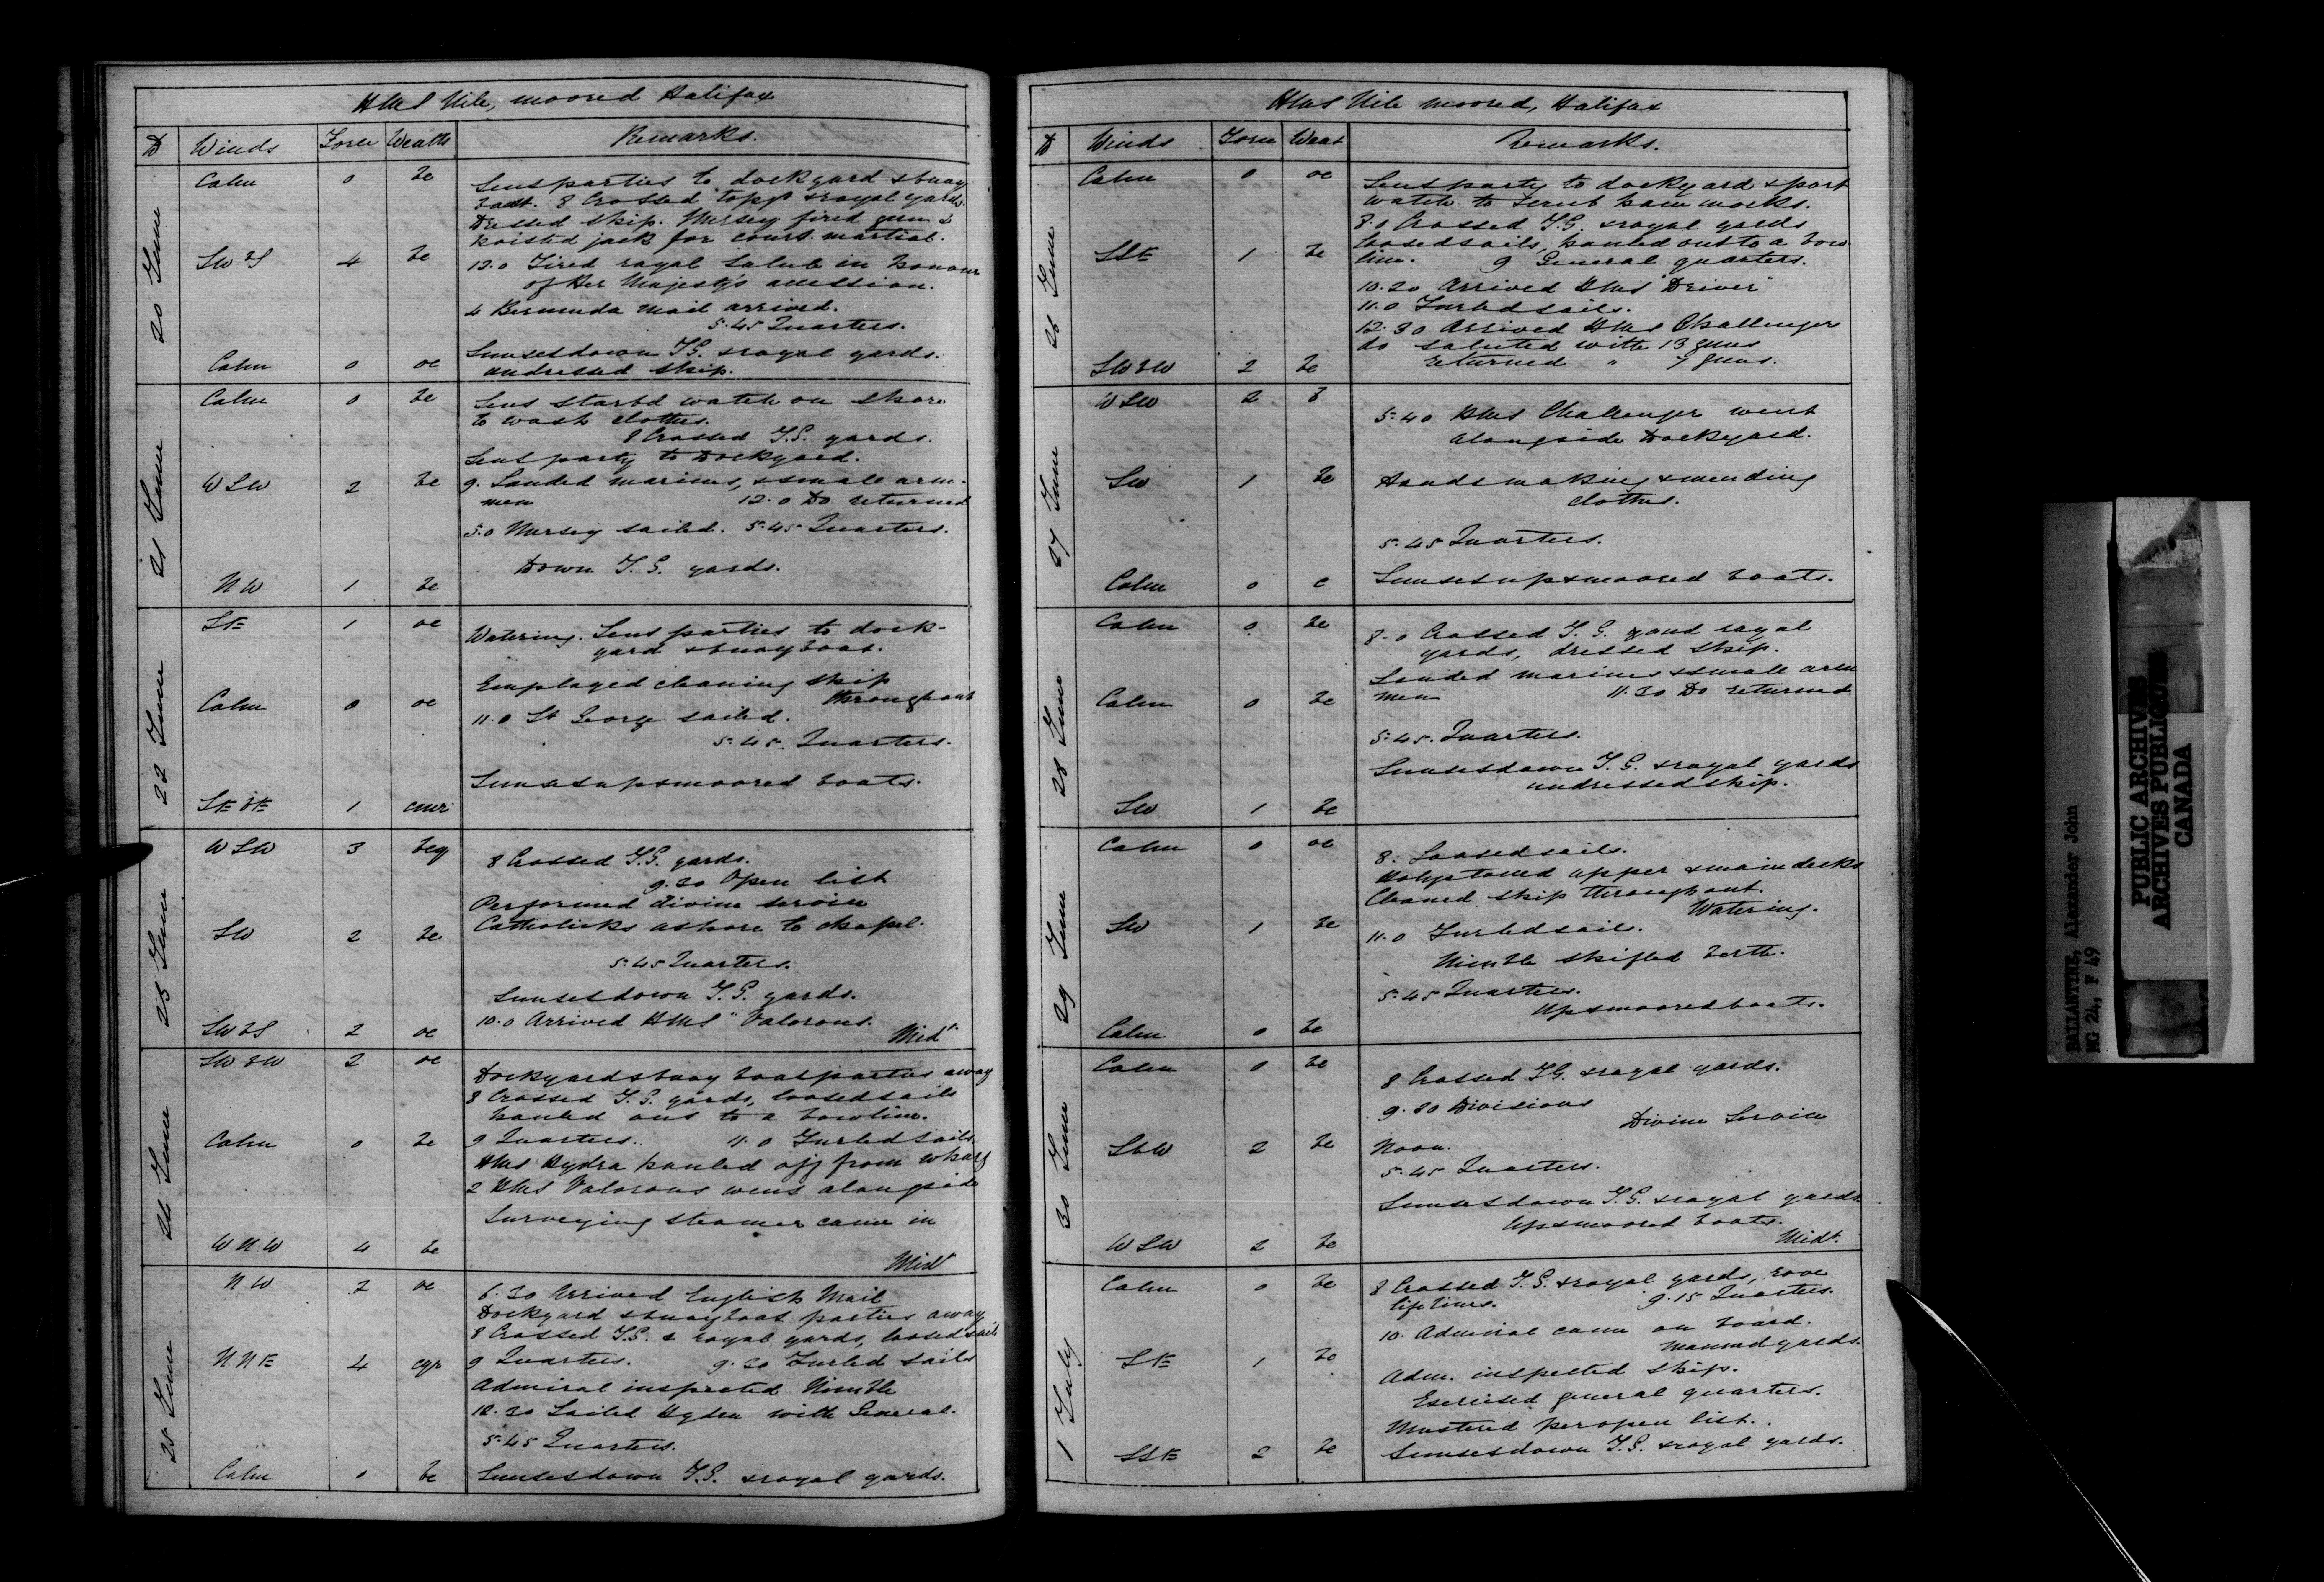 HMS Nile, moored Halifax
D Winds Force Weath Remarks.
20 June
Calm 0 bc Sent parties to dockyard & buoy
boat. 8 Crossed topgt & royal yards.
Dressed ship. Mersey fired gun &
hoisted jack for court martial.
SW2S 4 bc 12.0 Fired royal salute in honour
of Her Majesty's accession.
4 Bermuda mail arrived.
5.45 Quarters.
Sunset down T.G. & royal yards.
Calm 0 oc undressed ship.
21 June
Calm 0 bc Sent starbd watch on shore
to wash clothes.
8 Crossed T.G. yards.
Sent party to Dockyard.
WSW 2 bc 9. Landed marines, & small arm-
men 12.0 Do returned
5.0 Mersey sailed. 5.45 Quarters.
Down T.G. yards.
NW 1 bc
22 June
SE 1 oc Watering. Sent parties to dock-
yard & buoy boat.
Employed cleaning ship
throughout
Calm 0 oc 11.0 St George sailed.
5.45. Quarters.
Sunset up & moored boats.
SEbE 1 cmr
23 June
WSW 3 bcq 8 Crossed T.G. yards.
9.30 Open list
Performed divine service
SW 2 bc Catholicks ashore to chapel.
5.45 Quarters.
Sunset down T.G. yards.
SW2S 2 oc 10.0 Arrived HMS "Valorous. Midt.
24 June
SWbW 2 oc Dockyard & buoy boat parties away
8 Crossed T.G. yards, loosed sails
hauled out to a bowline.
Calm 0 bc 9 Quarters. 11.0 Furled sails
HMS Hydra hauled off from wharf
2 HMS Valorous went alongside
Surveying steamer came in
WNW 4 bc Midt
25 June
NW 2 oc 6.30 Arrived English Mail
Dockyard & buoy boat parties away
8 Crossed T.G. & royal yards, loosed sails
NNE 4 cqr 9 Quarters. 9.30 Furled sails
Admiral inspected Nimble
10.30 Sailed Hydra with General.
5.45 Quarters.
Calm 0 bc Sunset down T.G. & royal yards.
HMS Nile moored, Halifax
D Winds Force Weat Remarks.
26 June
Calm 0 oc Sent party to dockyard & port
watch to scrub hammocks.
8.0 Crossed T.G. & royal yards
loosed sails, hauled out to a bow
SSE 1 bc line. 9 General quarters.
10.20 Arrived HMS "Driver"
11.0 Furled sails.
12.30 Arrived HMS Challenger
do saluted with 13 guns
SWbW 2 bc returned " 7 guns.
27 June
WSW 2 b 5.40 HMS Challenger went
alongside Dockyard.
SW 1 bc Hands making & mending
clothes.
5.45 Quarters.
Calm 0 c Sunset up & moored boats.
28 June
Calm 0 bc 8.0 Crossed T.G. and royal
yards, dressed ship.
Landed marines & small arm
Calm 0 bc men 11.30 Do returned
5.45. Quarters.
Sunset down T.G. & royal yards
undressed ship.
SW 1 bc
29 June
Calm 0 oc 8. Loosed sails.
Holystoned upper & main decks
Cleaned ship throughout.
Watering.
SW 1 bc 11.0 Furled sail.
Nimble shifted berth.
5.45 Quarters.
Up & moored boats.
Calm 0 bc
30 June
Calm 0 bc 8 Crossed TG. & royal yards.
9.30 Divisions
Divine Service
SbW 2 bc Noon.
5.45 Quarters.
Sunset down T.G. & royal yards
Up & moored boats.
WSW 2 bc Midt.
1 July
Calm 0 bc 8 Crossed T.G. & royal yards, rove
lifelines. 9.15 Quarters.
10. Admiral came on board.
Manned yards.
SE 1 bc Adm. inspected ship.
Exercised general quarters.
Mustered per open list.
SSE 2 bc Sunset down T.G. & royal yards.
BALLANTYNE, Alexander John
MG 24, F 49
PUBLIC ARCHIVES
ARCHIVES PUBLIQUES
CANADA